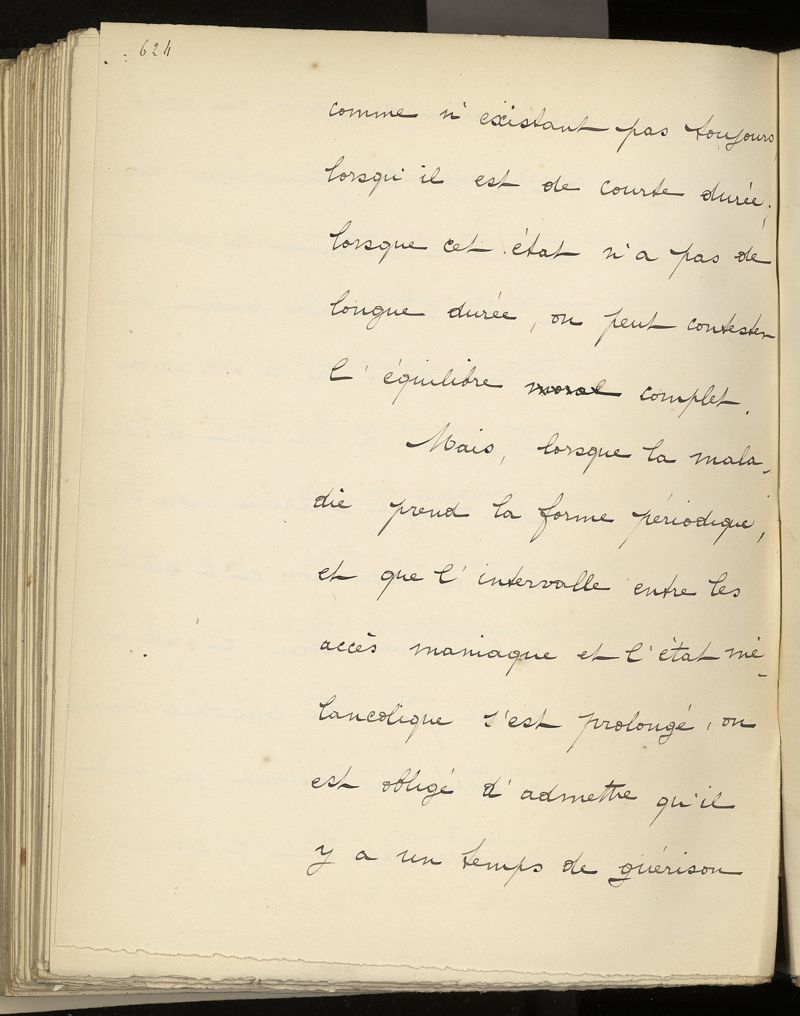 624
comme n'existant pas toujours,
lorsqu'il est de courte durée;
lorsque cet état n'a pas de
longue durée, on peut contester
l'équilibre moral complet.
Mais, lorsque la mala-
die prend la forme périodique,
et que l'intervalle entre les
accès maniaque et l'état mé-
lancolique s'est prolongé, on
est obligé d'admettre qu'il
y a un temps de guérison